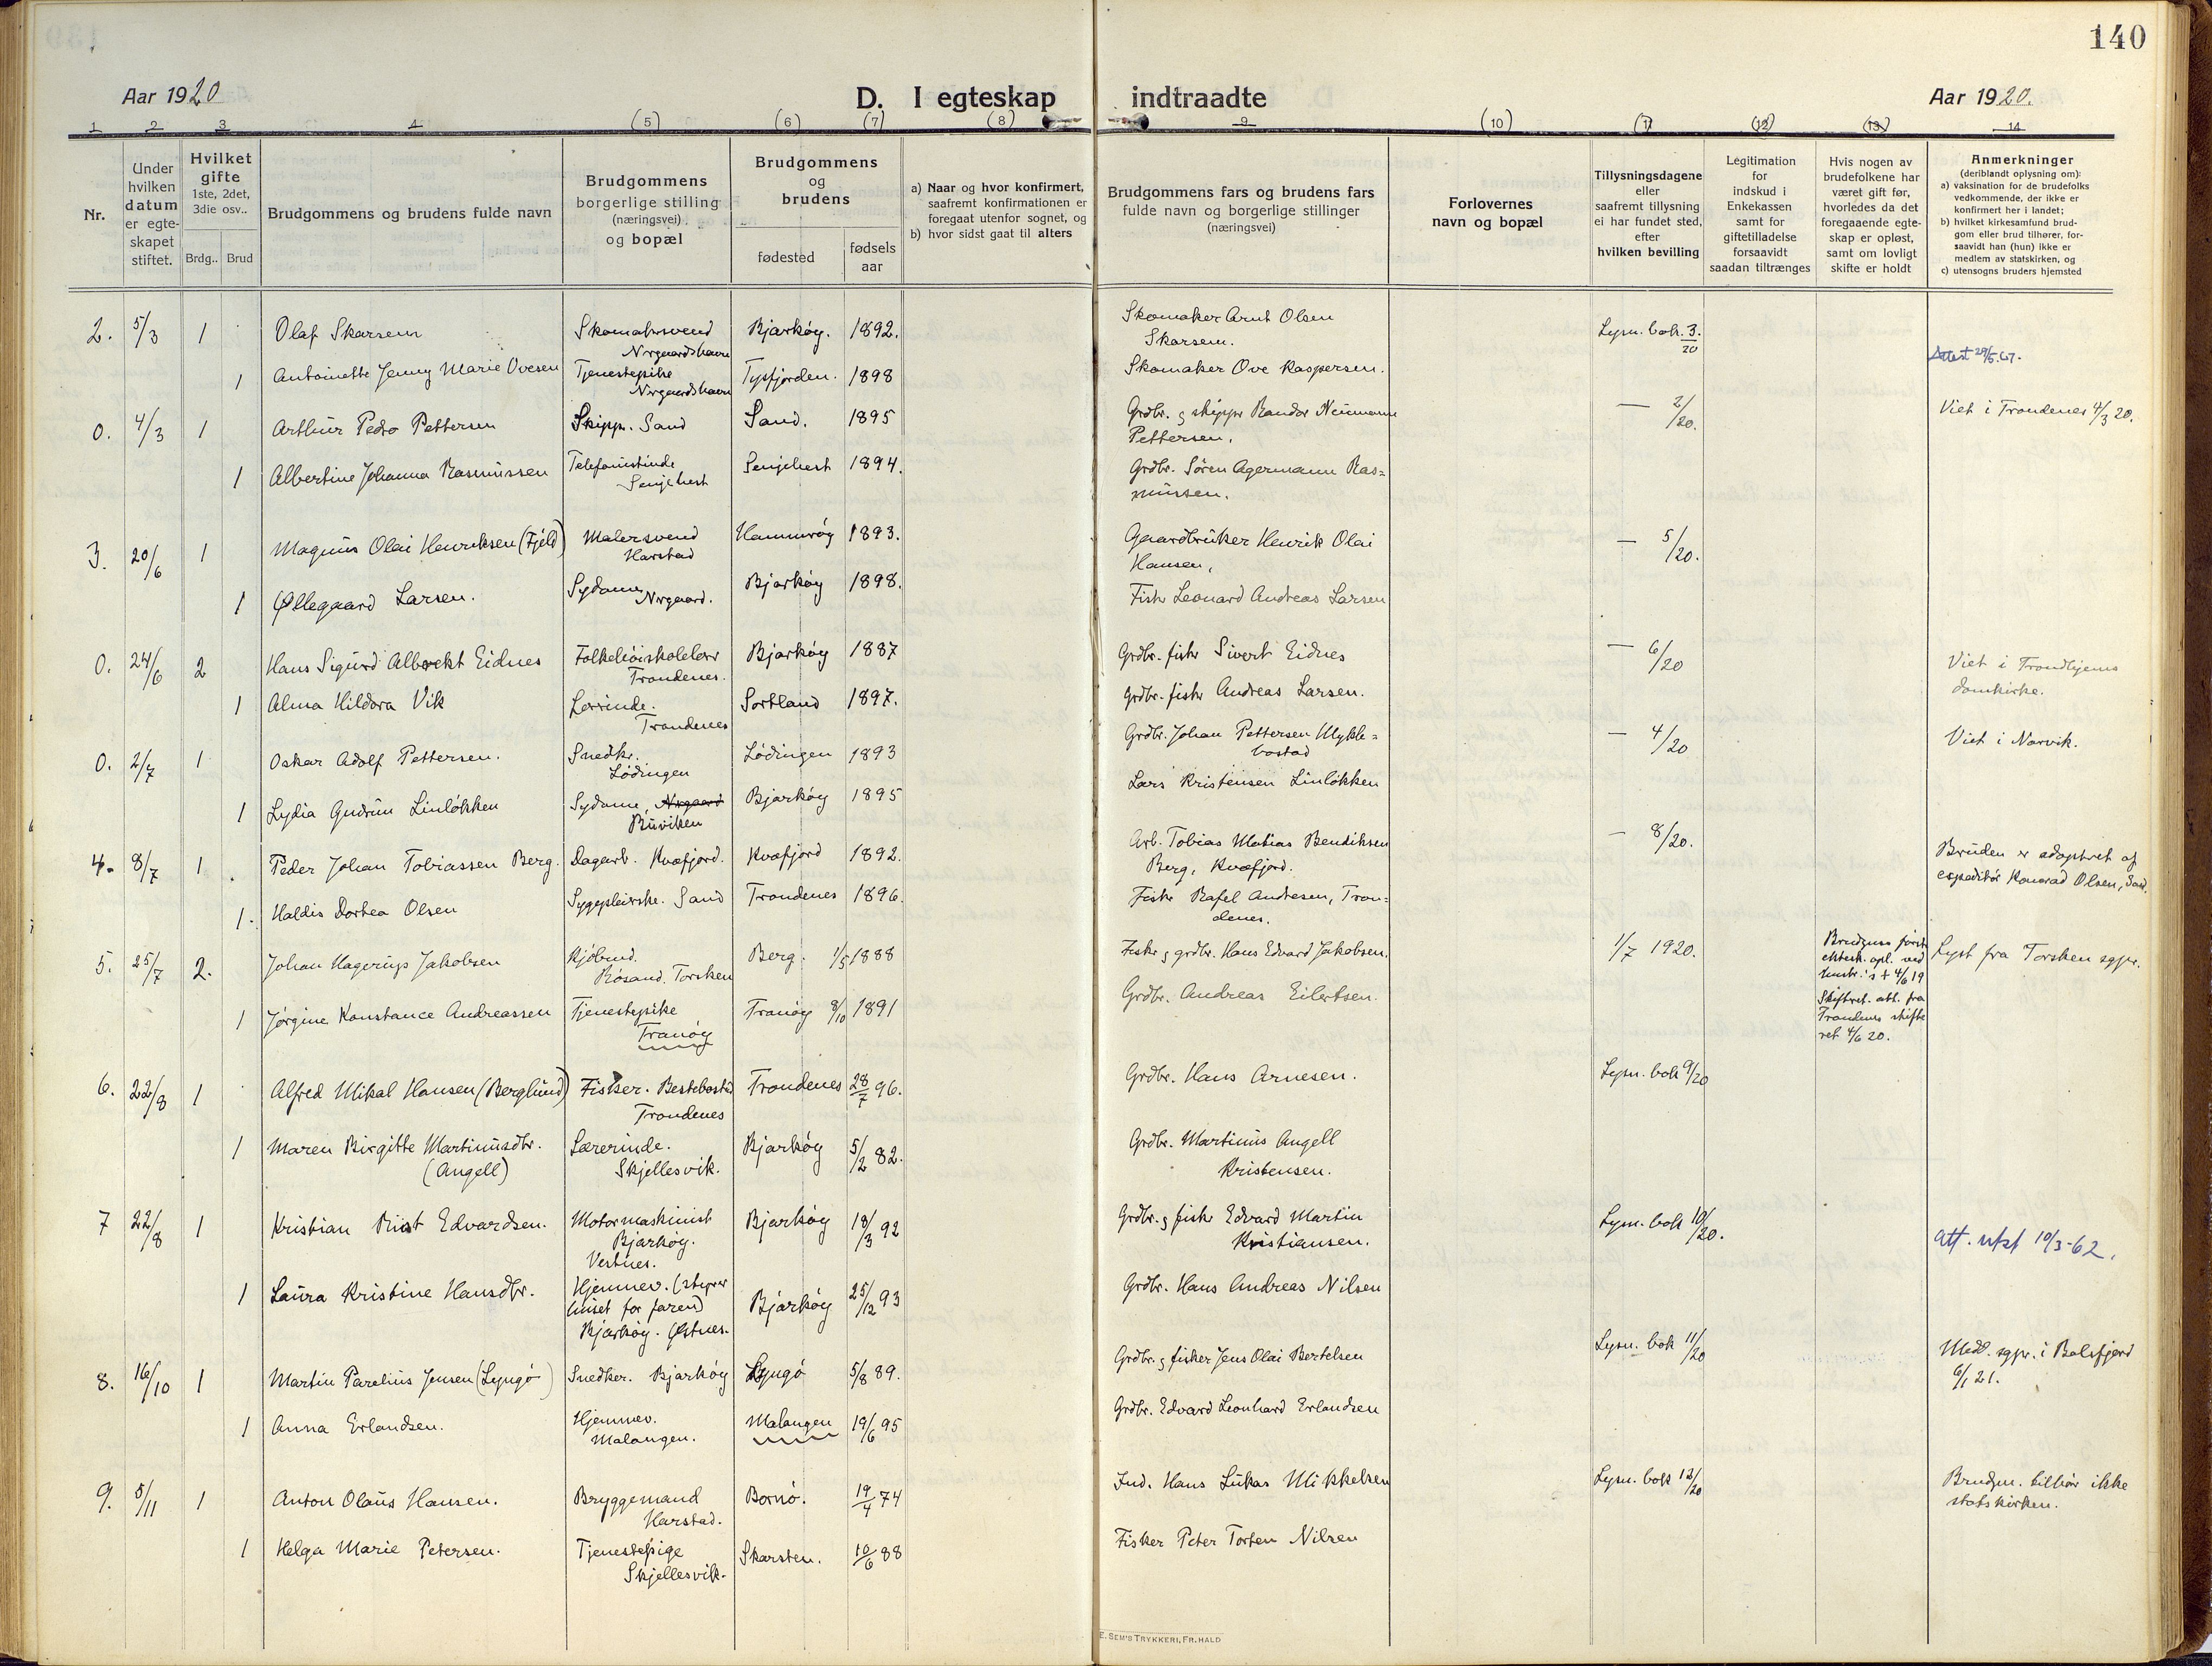 140
Aar 1920
D. I egteskap indtraadte
Aar 1920.
1 2 3 4 (5) (6) (7) (8) 9 (10) (11) (12) (13) 14
Nr.
Under
hvilken
datum
er egte-
skapet
stiftet.
Hvilket
gifte
1ste, 2det,
3die osv..
Brdg.. Brud
Brudgommens og brudens fulde navn
Brudgommens
borgerlige stilling
(næringsvei)
og bopæl
Brudgommens
og
brudens
fødested
fødsels
aar
a) Naar og hvor konfirmert,
saafremt konfirmationen er
foregaat utenfor sognet, og
b) hvor sidst gaat til alters
Brudgommens fars og brudens fars
fulde navn og borgerlige stillinger
(næringsvei)
Forlovernes
navn og bopæl
Tillysningsdagene
eller
saafremt tillysning
ei har fundet sted,
efter
hvilken bevilling
Legitimation
for
indskud i
Enkekassen
samt for
giftetilladelse
forsaavidt
saadan tiltrænges
Hvis nogen av
brudefolkene har
været gift før,
hvorledes da det
foregaaende egte-
skap er opløst,
samt om lovligt
skifte er holdt
Anmerkninger
(deriblandt oplysning om):
a) vaksination for de brudefolks
vedkommende, der ikke er
konfirmert her i landet;
b) hvilket kirkesamfund brud-
gom eller brud tilhører, for-
saavidt han (hun) ikke er
medlem av statskirken, og
c) utensogns bruders hjemsted
2. 5/3 1 Olaf Skarsem Skomakrsvend Bjarköy. 1892. Skomaker Arnt Olsen Lysn. bok. 3/20
Nrgaardshavn Skarsem.
1 Antoinette Jenny Marie Ovesen Tjenestepike Tysfjorden. 1898 Skomaker Ove Kaspersen. Attest 29/5.67.
Nrgaardshavn
0. 4/3 1 Arthur Pedro Pettersen Skippr. Sand Sand. 1895 Grdbr. & skippr Randor Neumann — 2/20. Viet i Trondenes 4/3 20.
Pettersen.
1 Albertine Johanna Rasmussen Telefonistinde Senjehest 1894. Grdbr. Sören Agermann Ras=
Senjehest mussen.
3. 20/6 1 Magnus Olai Henriksen (Fjeld) Malersvend Hammröy 1893. Gaardbruker Henrik Olai — 5/20.
Harstad Hansen,
1 Øllegaard Larsen. Sydame Bjarköy 1898. Fiskr Leonard Andreas Larsen
Nrgaard.
0. 24/6 2 Hans Sigurd Albrekt Eidnes Folkehöiskolelærer Bjarköy 1887 Grdbr. fiskr Sivert Eidnes — 6/20 Viet i Trondhjems
Trondenes. domkirke.
1 Alma Hildora Vik Lærrinde. Sortland 1897. Grdbr. fiskr Andreas Larsen.
Trondenes
0. 2/7 1 Oskar Adolf Pettersen. Snedkr. Lödingen 1893 Grdbr. Johan Pettersen Mykle= — 4/20 Viet i Narvik.
Lödingen bostad
1 Lydia Gudrun Linlökken Sydame, Nrgaard Bjarköy 1895 Lars Kristensen Linlökken
Buviken
4. 8/7 1 Peder Johan Tobiassen Berg. Dagarb. Kvæfjord. Kvæfjord 1892. Arb. Tobias Matias Bendiksen — 8/20. Bruden er adoptret af
Berg, Kvæfjord. expeditör Konrad Olsen, Sand.
1. Haldis Dortea Olsen Sygepleierske. Sand Trondenes 1896. Fiskr Rafel Andresen, Tron=
denes.
5. 25/7 2. Johan Hagerup Jakobsen Kjöbmd. Berg. 1/5 1888 Fiskr & grdbr. Hans Edvard Jakobsen. 1/7 1920. Brudgms först Lyst fra Torsken sgpr.
Rösand. Torsken ektesk. opl. ved
hustr.'s + 4/6 19
1 Jörgine Konstance Andreassen Tjenestepike Tranöy 8/10 1891 Grdbr. Andreas Eilertsen. Skifteret. att. fra
Tranöy Trondenes skifte
ret 4/6 20.
6. 22/8 1 Alfred Mikal Hansen (Berglund) Fisker. Bestebostad Trondenes 28/7 96. Grdbr. Hans Arnesen. Lysn. bok 9/20
Trondenes
1 Maren Birgitte Martinusdtr. Lærerinde. Bjarköy 5/2 82. Grdbr. Martinus Angell
(Angell) Skjellesvik. Kristensen.
7 22/8 1 Kristian Riist Edvardsen. Motormaskinist Bjarköy 18/3 92 Grdbr. & fiskr Edvard Martin Lysn. bok 10/20. Att. utst 10/3-62.
Bjarköy. Kristiansen.
Vestnes.
1 Laura Kristine Hansdtr. Hjemmev. (styrer Bjarköy 25/12 93 Grdbr. Hans Andreas Nilsen
huset for faren)
Bjarköy. Østnes.
8. 16/10 1 Martin Parelius Jensen (Lyngö) Snedker. Bjarköy Lyngö 5/8 89. Grdbr. & fisker Jens Olai Bertelsen Lysn. bok 11/20 Medl. sgpr. i Balsfjord
6/1 21.
1 Anna Erlandsen. Hjemmev. Malangen 19/6 95 Grdbr. Edvard Leonhard Erlandsen
Malangen.
9. 5/11 1 Anton Olaus Hansen. Bryggemand Bornö. 19/4 74 Ind. Hans Lukas Mikkelsen Lysn. bok 12/20 Brudgm. tilhör ikke
Harstad. statskirken.
1 Helga Marie Petersen. Tjenestepige Skarsten. 10/6 88 Fisker Peter Torten Nilsen
Skjellesvik.
E. SEM'S TRYKKERI, FR. HALD